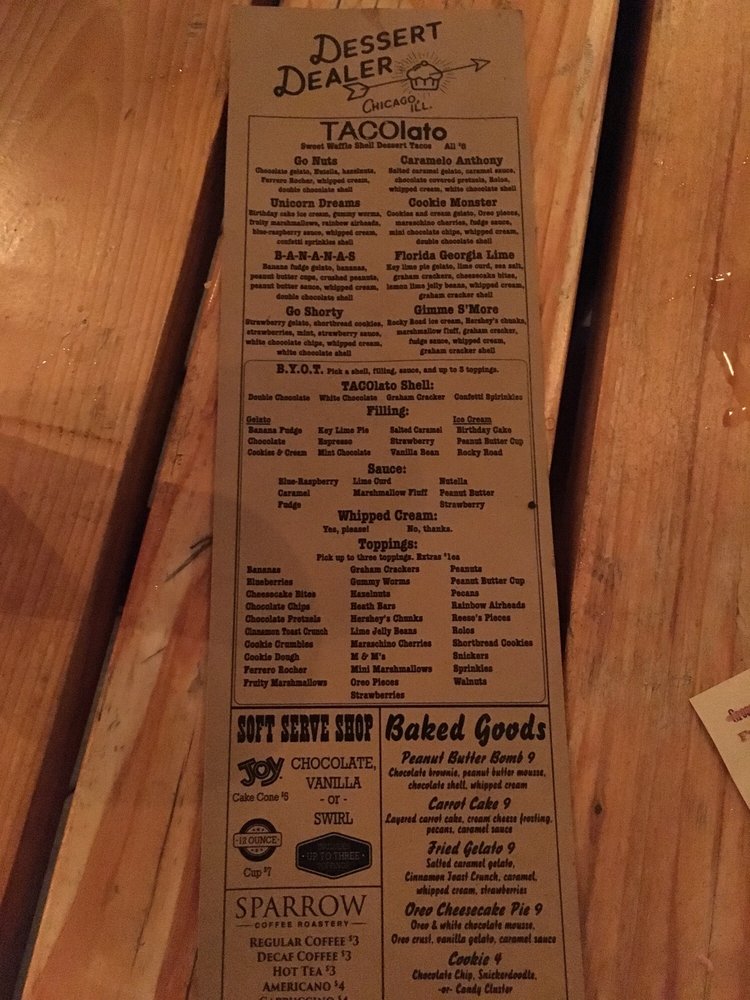 DESSERT
DEALER
CHICAGO, ILL.
TACOlato
Sweet Waffle Shell Dessert Tacos All $8
Go Nuts
Chocolate gelato, Nutella, hazelnuts,
Ferrero Rocher, whipped cream,
double chocolate shell
Caramelo Anthony
Salted caramel gelato, caramel sauce,
chocolate covered pretzels, Rolos,
whipped cream, white chocolate shell
Unicorn Dreams
Birthday cake ice cream, gummy worms,
fruity marshmallows, rainbow airheads,
blue-raspberry sauce, whipped cream,
confetti sprinkles shell
Cookie Monster
Cookies and cream gelato, Oreo pieces,
maraschino cherries, fudge sauce,
mini chocolate chips, whipped cream,
double chocolate shell
B-A-N-A-N-A-S
Banana fudge gelato, bananas,
peanut butter cups, crushed peanuts,
peanut butter sauce, whipped cream,
double chocolate shell
Florida Georgia Lime
Key lime pie gelato, lime curd, sea salt,
graham crackers, cheesecake bites,
lemon lime jelly beans, whipped cream,
graham cracker shell
Go Shorty
Strawberry gelato, shortbread cookies,
strawberries, mint, strawberry sauce,
white chocolate chips, whipped cream,
white chocolate shell
Gimme S'More
Rocky Road ice cream, Hershey's chunks,
marshmallow fluff, graham cracker,
fudge sauce, whipped cream,
graham cracker shell
B.Y.O.T. Pick a shell, filling, sauce, and up to 3 toppings.
TACOlato Shell:
Double Chocolate White Chocolate Graham Cracker Confetti Spirinkles
Filling:
Gelato Ice Cream
Banana Fudge Key Lime Pie Salted Caramel Birthday Cake
Chocolate Espresso Strawberry Peanut Butter Cup
Cookies & Cream Mint Chocolate Vanilla Bean Rocky Road
Sauce:
Blue-Raspberry Lime Curd Nutella
Caramel Marshmallow Fluff Peanut Butter
Fudge Strawberry
Whipped Cream:
Yes, please! No, thanks.
Toppings:
Pick up to three toppings. Extras $1ea
Bananas Graham Crackers Peanuts
Blueberries Gummy Worms Peanut Butter Cup
Cheesecake Bites Hazelnuts Pecans
Chocolate Chips Heath Bars Rainbow Airheads
Chocolate Pretzels Hershey's Chunks Reese's Pieces
Cinnamon Toast Crunch Lime Jelly Beans Rolos
Cookie Crumbles Maraschino Cherries Shortbread Cookies
Cookie Dough M & M's Snickers
Ferrero Rocher Mini Marshmallows Sprinkles
Fruity Marshmallows Oreo Pieces Walnuts
Strawberries
SOFT SERVE SHOP
JOY
Cake Cone $5
CHOCOLATE,
VANILLA
- or -
SWIRL
12 OUNCE
Cup $7
UP TO THREE
SPARROW
COFFEE ROASTERY
REGULAR COFFEE $3
DECAF COFFEE $3
HOT TEA $3
AMERICANO $4
CAPPUCCINO $4
Baked Goods
Peanut Butter Bomb 9
Chocolate brownie, peanut butter mousse,
chocolate shell, whipped cream
Carrot Cake 9
Layered carrot cake, cream cheese frosting,
pecans, caramel sauce
Fried Gelato 9
Salted caramel gelato,
Cinnamon Toast Crunch, caramel,
whipped cream, strawberries
Oreo Cheesecake Pie 9
Oreo & white chocolate mousse,
Oreo crust, vanilla gelato, caramel sauce
Cookie 4
Chocolate Chip, Snickerdoodle,
-or- Candy Cluster